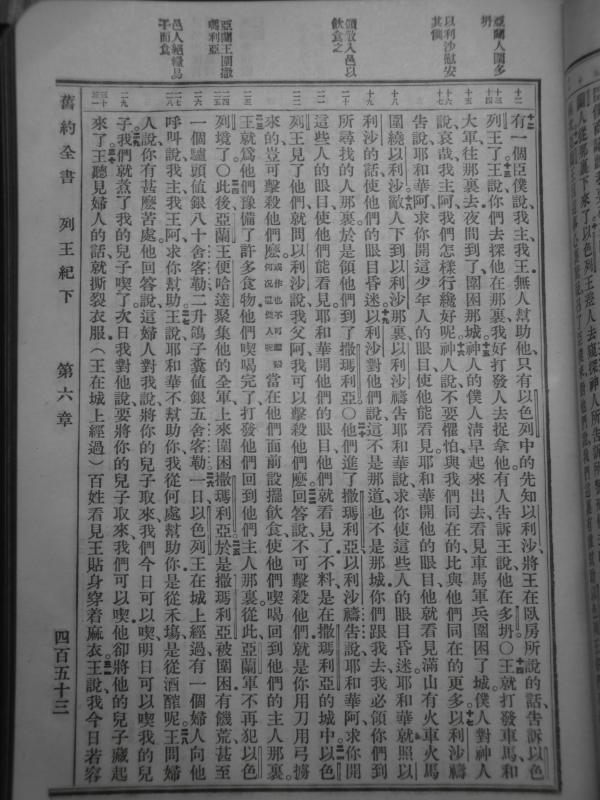 亞蘭人圍多坍
以利沙慰安其僕
領敵入邑以飲食之
亞蘭王圍撒瑪利亞
邑人絕糧易子而食
有一個臣僕說我主我王無人幫助他只有以色列中的先知以利沙將王在臥房所說的話告訴以色
列王了王說你們去探他在那裏我好打發人去捉拿他有人告訴王說他在多坍〇王就打發車馬和
大軍往那裏去夜間到了圍困那城神人的僕人清早起來出去看見車馬軍兵圍困了城僕人對神人
說哀哉我主阿我們怎樣行纔好呢神人說不要懼怕與我們同在的比與他們同在的更多以利沙禱
告說耶和華阿求你開這少年人的眼目使他能看見耶和華開他的眼目他就看見滿山有火車火馬
圍繞以利沙敵人下到以利沙那裏以利沙禱告耶和華說求你使這些人的眼目昏迷耶和華就照以
利沙的話使他們的眼目昏迷以利沙對他們說這不是那道也不是那城你們跟我去我必領你們到
所尋找的人那裏於是領他們到了撒瑪利亞〇他們進了撒瑪利亞以利沙禱告說耶和華阿求你開
這些人的眼目使他們能看見耶和華開他們的眼目他們就看見了不料是在撒瑪利亞的城中以色
列王見了他們就問以利沙說我父阿我可以擊殺他們麼回答說不可擊殺他們就是你用刀用弓擄
來的豈可擊殺他們麼當在他們面前設擺飲食使他們喫喝回到他們的主人那裏
王就爲他們豫備了許多食物他們喫喝完了打發他們回到他們主人那裏從此亞蘭軍不再犯以色
列境了〇此後亞蘭王便哈達聚集他的全軍上來圍困撒瑪利亞於是撒瑪利亞被圍困有饑荒甚至
一個驢頭値銀八十舍客勒二升鴿子糞値銀五舍客勒一日以色列王在城上經過有一個婦人向他
呼叫說我主我王阿求你幫助王說耶和華不幫助你我從何處幫助你是從禾塲是從酒醡呢王問婦
人說你有甚麼苦處他回答說這婦人對我說將你的兒子取來我們今日可以喫明日可以喫我的兒
子我們就煑了我的兒子喫了次日我對他說要將你的兒子取來我們可以喫他卻將他的兒子藏起
來了王聽見婦人的話就撕裂衣服（王在城上經過）百姓看見王貼身穿着麻衣王說我今日若容
舊約全書 列王紀下 第六章 四百五十三